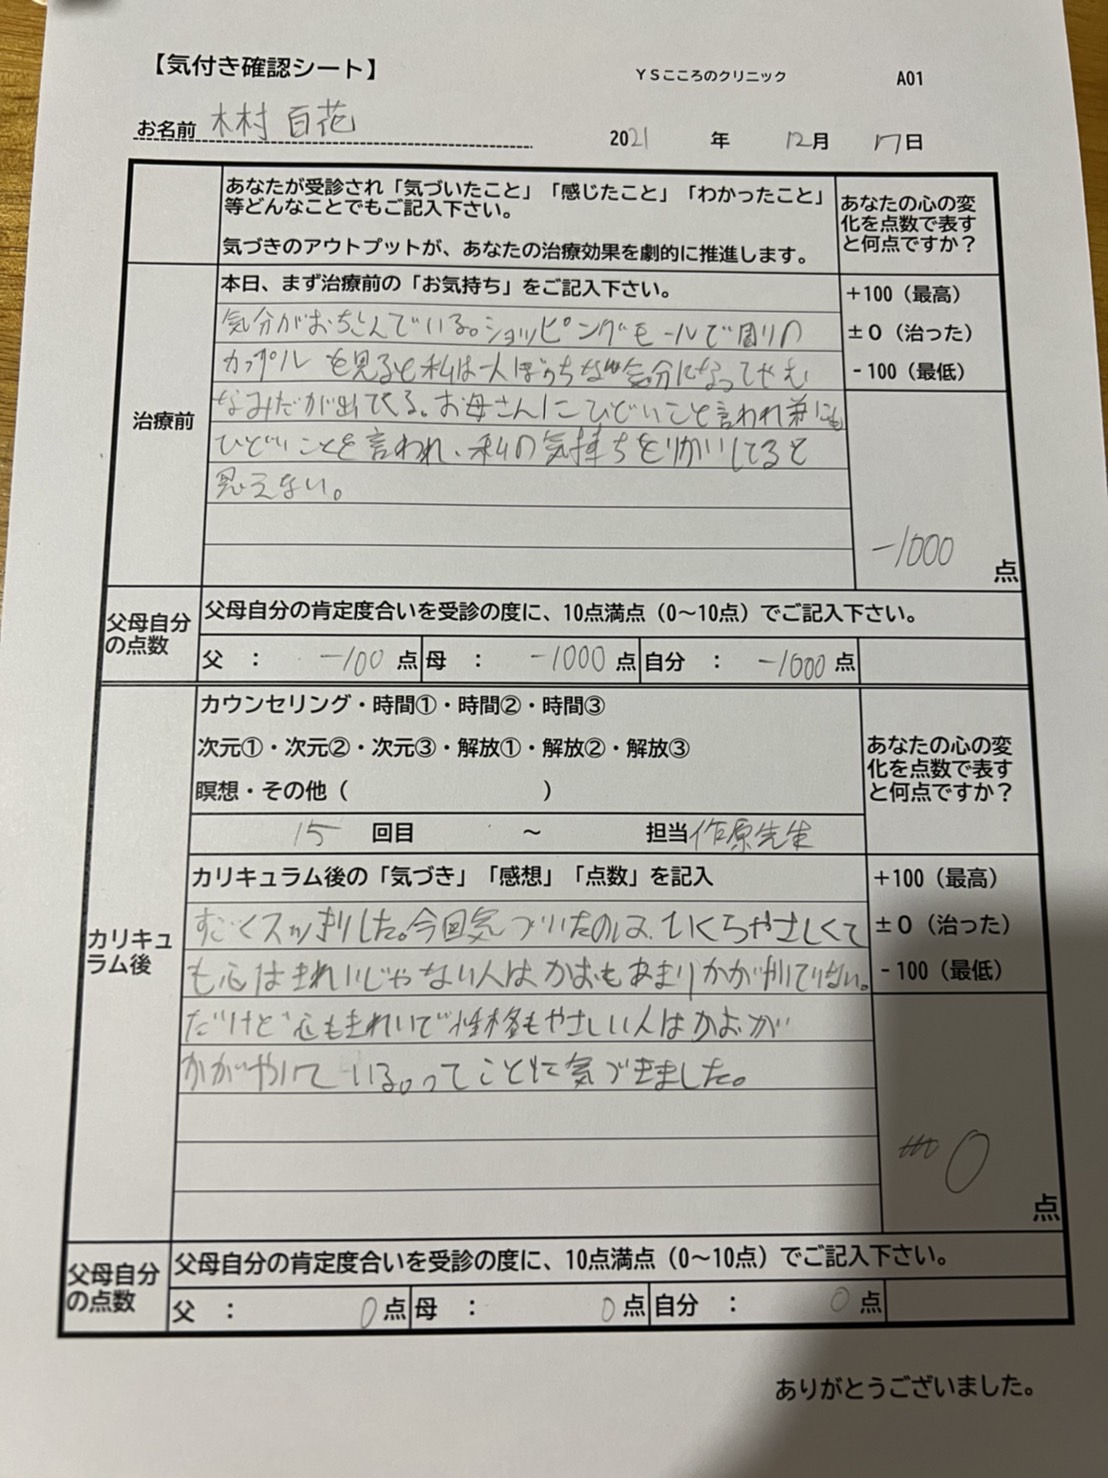 【気付き確認シート】
YSこころのクリニック
A01
お名前 木村 百花
2021 年 12月 17日
あなたが受診され「気づいたこと」「感じたこと」「わかったこと」
等どんなことでもご記入下さい。
気づきのアウトプットが、あなたの治療効果を劇的に推進します。
あなたの心の変
化を点数で表す
と何点ですか？
治療前
本日、まず治療前の「お気持ち」をご記入下さい。
気分がおちこんでいる。ショッピングモールで周りの
カップルを見ると私は一人ぼっちな気分になってやむ
なみだが出てくる。お母さんにひどいこと言われ弟にも
ひどいことを言われ、私の気持ちをりかいしてると
思えない。
+100（最高）
±0（治った）
-100（最低）
-1000 点
父母自分
の点数
父母自分の肯定度合いを受診の度に、10点満点（0～10点）でご記入下さい。
父 ： -100 点 母 ： -1000 点 自分 ： -1000 点
カウンセリング・時間①・時間②・時間③
次元①・次元②・次元③・解放①・解放②・解放③
瞑想・その他（ ）
15 回目 ～ 担当 作原先生
あなたの心の変
化を点数で表す
と何点ですか？
カリキュ
ラム後
カリキュラム後の「気づき」「感想」「点数」を記入
すごくスッきりした。今回気づいたのは、いくらやさしくて
も心はきれいじゃない人はかおもあまりかがやいてない。
だけど心もきれいで性格もやさしい人はかおが
かがやいている。ってことに気づきました。
+100（最高）
±0（治った）
-100（最低）
0 点
父母自分
の点数
父母自分の肯定度合いを受診の度に、10点満点（0～10点）でご記入下さい。
父 ： 0 点 母 ： 0 点 自分 ： 0 点
ありがとうございました。